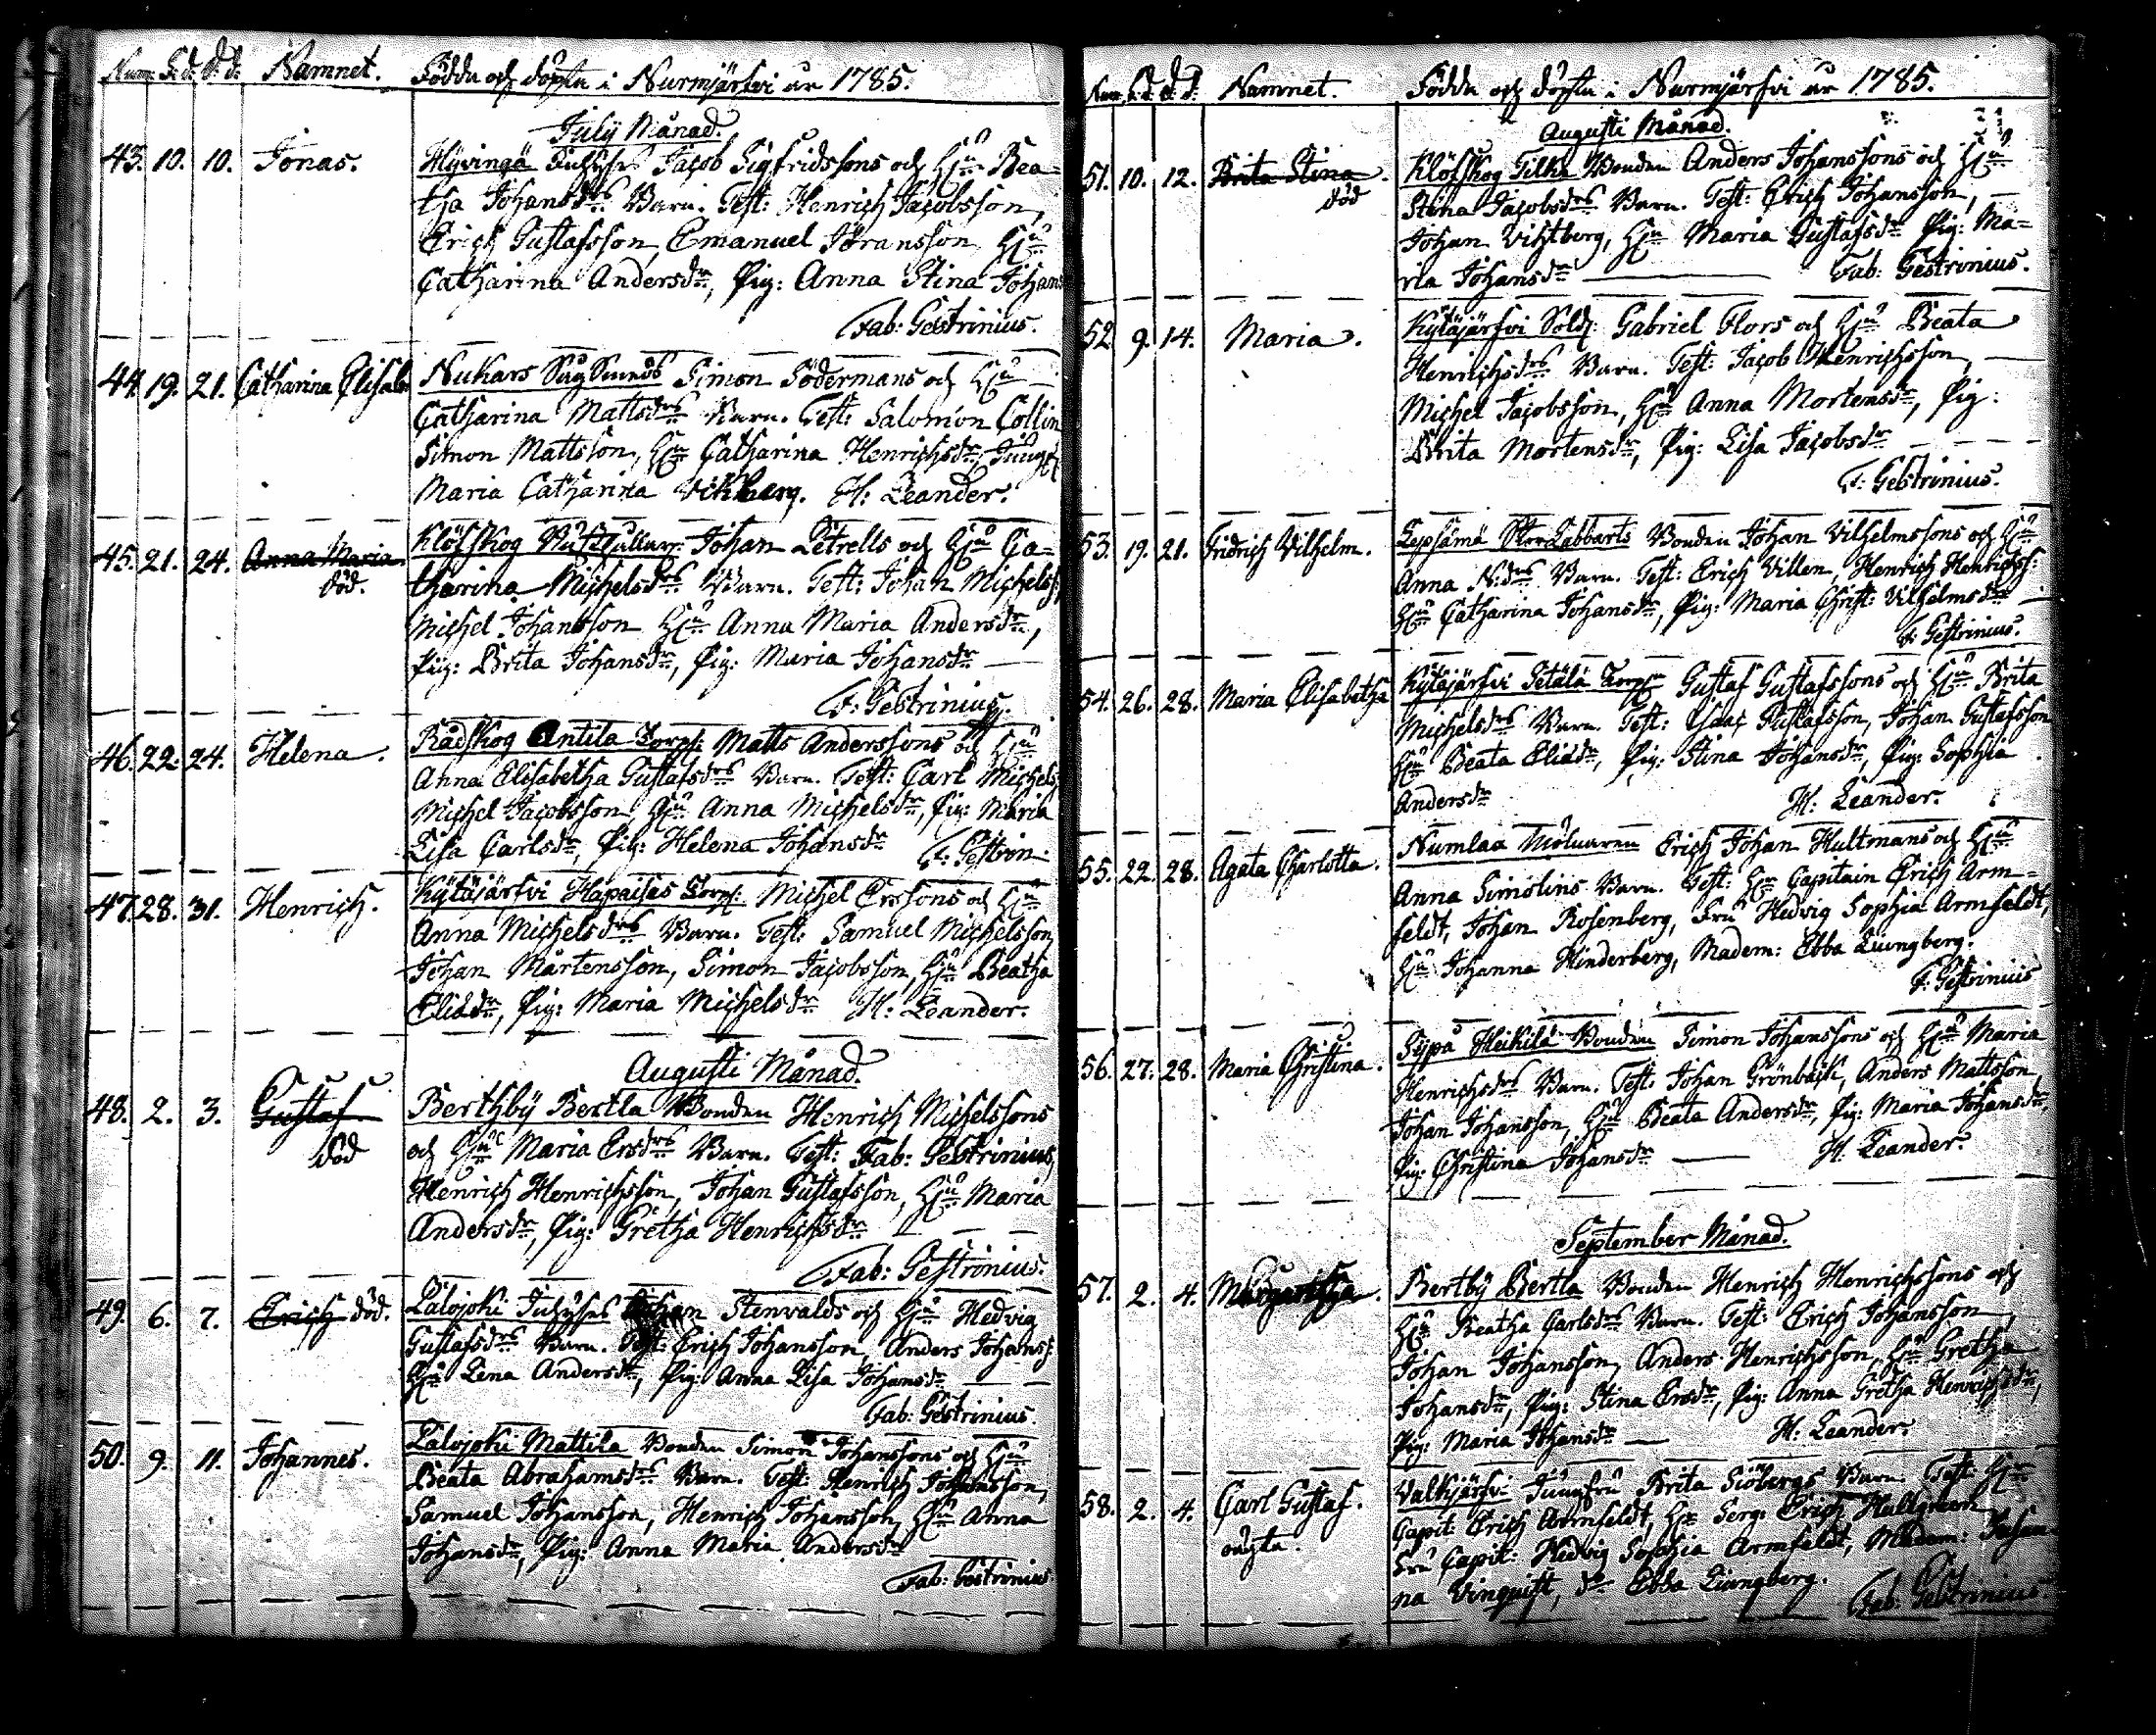 Num: F.d. D.d. Namnet. Födda och döpta i Nurmjärfvi år 1785.
July Månad.
43. 10. 10. Jonas. Hyvingä Jacob Sigfridssons och Hju Bea-
tha Johansdrs Barn. Test: Henrich Jacobsson,
Erich Gustafsson, Emanuel Jöransson, Hju
Catharina Andersdr, Pig: Anna Stina Johans
Fab: Gestrinius.
44. 19. 21. Catharina Elisab Nukars Simon Södermans och Hju
Catharina Mattsdrs Barn. Test: Salomon Collin
Simon Mattsson, Hju Catharina Henrichsdr, Jungf
Maria Catharina Vikberg. H: Leander.
45. 21. 24. Anna Maria Klöfskog Johan Petrells och Hju Ca-
död. tharina Michelsdrs Barn. Test: Johan Michelss:
Michel Johansson Hju Anna Maria Andersdr,
Pig: Brita Johansdr, Pig: Maria Johansdr
F: Gestrinius.
46. 22. 24. Helena. Rådskog Antila Torp: Matts Anderssons och Hju
Anna Elisabetha Gustafsdrs Barn. Test: Carl Michels,
Michel Jacobsson, Hju Anna Michelsdr, Pig: Maria
Lisa Carlsdr, Pig: Helena Johansdr F: Gestrin:
47. 28. 31. Henrich. Kytäjärfvi Hapaisas Torp: Michel Erssons och Hju
Anna Michelsdrs Barn. Test: Samuel Michelsson
Johan Mårtensson, Simon Jacobsson, Hju Beatha
Eliædr, Pig: Maria Michelsdr H: Leander.
Augusti Månad.
48. 2. 3. Gustaf. Berthby Bertla Bonden Henrich Michelssons
död och Hju Maria Ersdrs Barn. Test: Fab: Gestrinius,
Henrich Henrichsson, Johan Gustafsson, Hju Maria
Andersdr, Pig: Gretha Henrichsdr
Fab: Gestrinius.
49. 6. 7. Erich död. Palojoki Johan Stenvalds och Hju Hedvig
Gustafsdrs Barn. Test: Erich Johansson, Anders Johanss:
Hju Lena Andersdr, Pig: Anna Lisa Johansdr
Fab: Gestrinius.
50. 9. 11. Johannes. Palojoki Mattila Bonden Simon Johanssons och Hju
Beata Abrahamsdrs Barn. Test: Henrich Johansson,
Samuel Johansson, Henrich Johansson, Hju Anna
Johansdr, Pig: Anna Maria Andersdr
Fab: Gestrinius
Num: F.d. D.d. Namnet. Födda och döpta i Nurmjärfvi år 1785.
Augusti Månad.
51. 10. 12. Brita Stina. Klöfskog Bonden Anders Johanssons och Hju
död Stina Jacobsdrs Barn. Test: Erich Johansson,
Johan Vihtberg, Hju Maria Gustafsdr Pig: Ma-
ria Johansdr Fab: Gestrinius.
52 9. 14. Maria. Kytäjärfvi Sold: Gabriel Flors och Hju Beata
Henrichsdrs Barn. Test: Jacob Henrichsson,
Michel Jacobsson, Hju Anna Mortensdr, Pig:
Brita Mortensdr, Pig: Lisa Jacobsdr
F: Gestrinius.
53. 19. 21. Fridrich Vilhelm. Lepsämä Stor Labbarts Bonden Johan Vilhelmssons och Hju
Anna N:drs Barn. Test: Erich Villen, Henrich Henrichss:
Hju Catharina Johansdr, Pig: Maria Christ: Vilhelmsdr
F: Gestrinius.
54. 26. 28. Maria Elisabetha Kytäjärfvi Setälä Torp: Gustaf Gustafssons och Hju Brita
Michelsdrs Barn. Test: Isaac Gustafsson, Johan Gustafsson
Hju Beata Eliædr, Pig: Stina Johansdr, Pig: Sophia
Andersdr H: Leander.
55. 22. 28. Agata Charlotta. Numlaa Erich Johan Hultmans och Hju
Anna Simolins Barn. Test: Hr Capitain Erich Arm-
feldt, Johan Rosenberg, Fru Hedvig Sophia Armfeldt,
Hju Johanna Hinderberg, Madem: Ebba Liungberg.
F: Gestrinius
56. 27. 28. Maria Christina. Sypä Heikilä Bonden Simon Johanssons och Hju Maria
Henrichsdrs Barn. Test: Johan Grönbäck, Anders Mattsson,
Johan Johansson, Hju Beata Andersdr, Pig: Maria Johansdr,
Pig: Christina Johansdr H: Leander.
September Månad.
57. 2. 4. Margaretha. Bertby Bertla Bonden Henrich Henrichssons och
Hju Beatha Carlsdrs Barn. Test: Erich Johansson,
Johan Johansson, Anders Henrichsson, Hju Gretha
Johansdr, Pig: Stina Ersdr, Pig: Anna Gretha Henrichsdr,
Pig: Maria Johansdr H: Leander.
58. 2. 4. Carl Gustaf. Valkjärfvi Jungfru Brita Siöbergs Barn. Test: Hr
oägta. Capit: Erich Armfeldt, Hr Serg: Erich Hallgreen
Fru Capit: Hedvig Sophia Armfeldt, Madem: Johan-
na Vinquist, do Ebba Liungberg. Fab: Gestrinius.